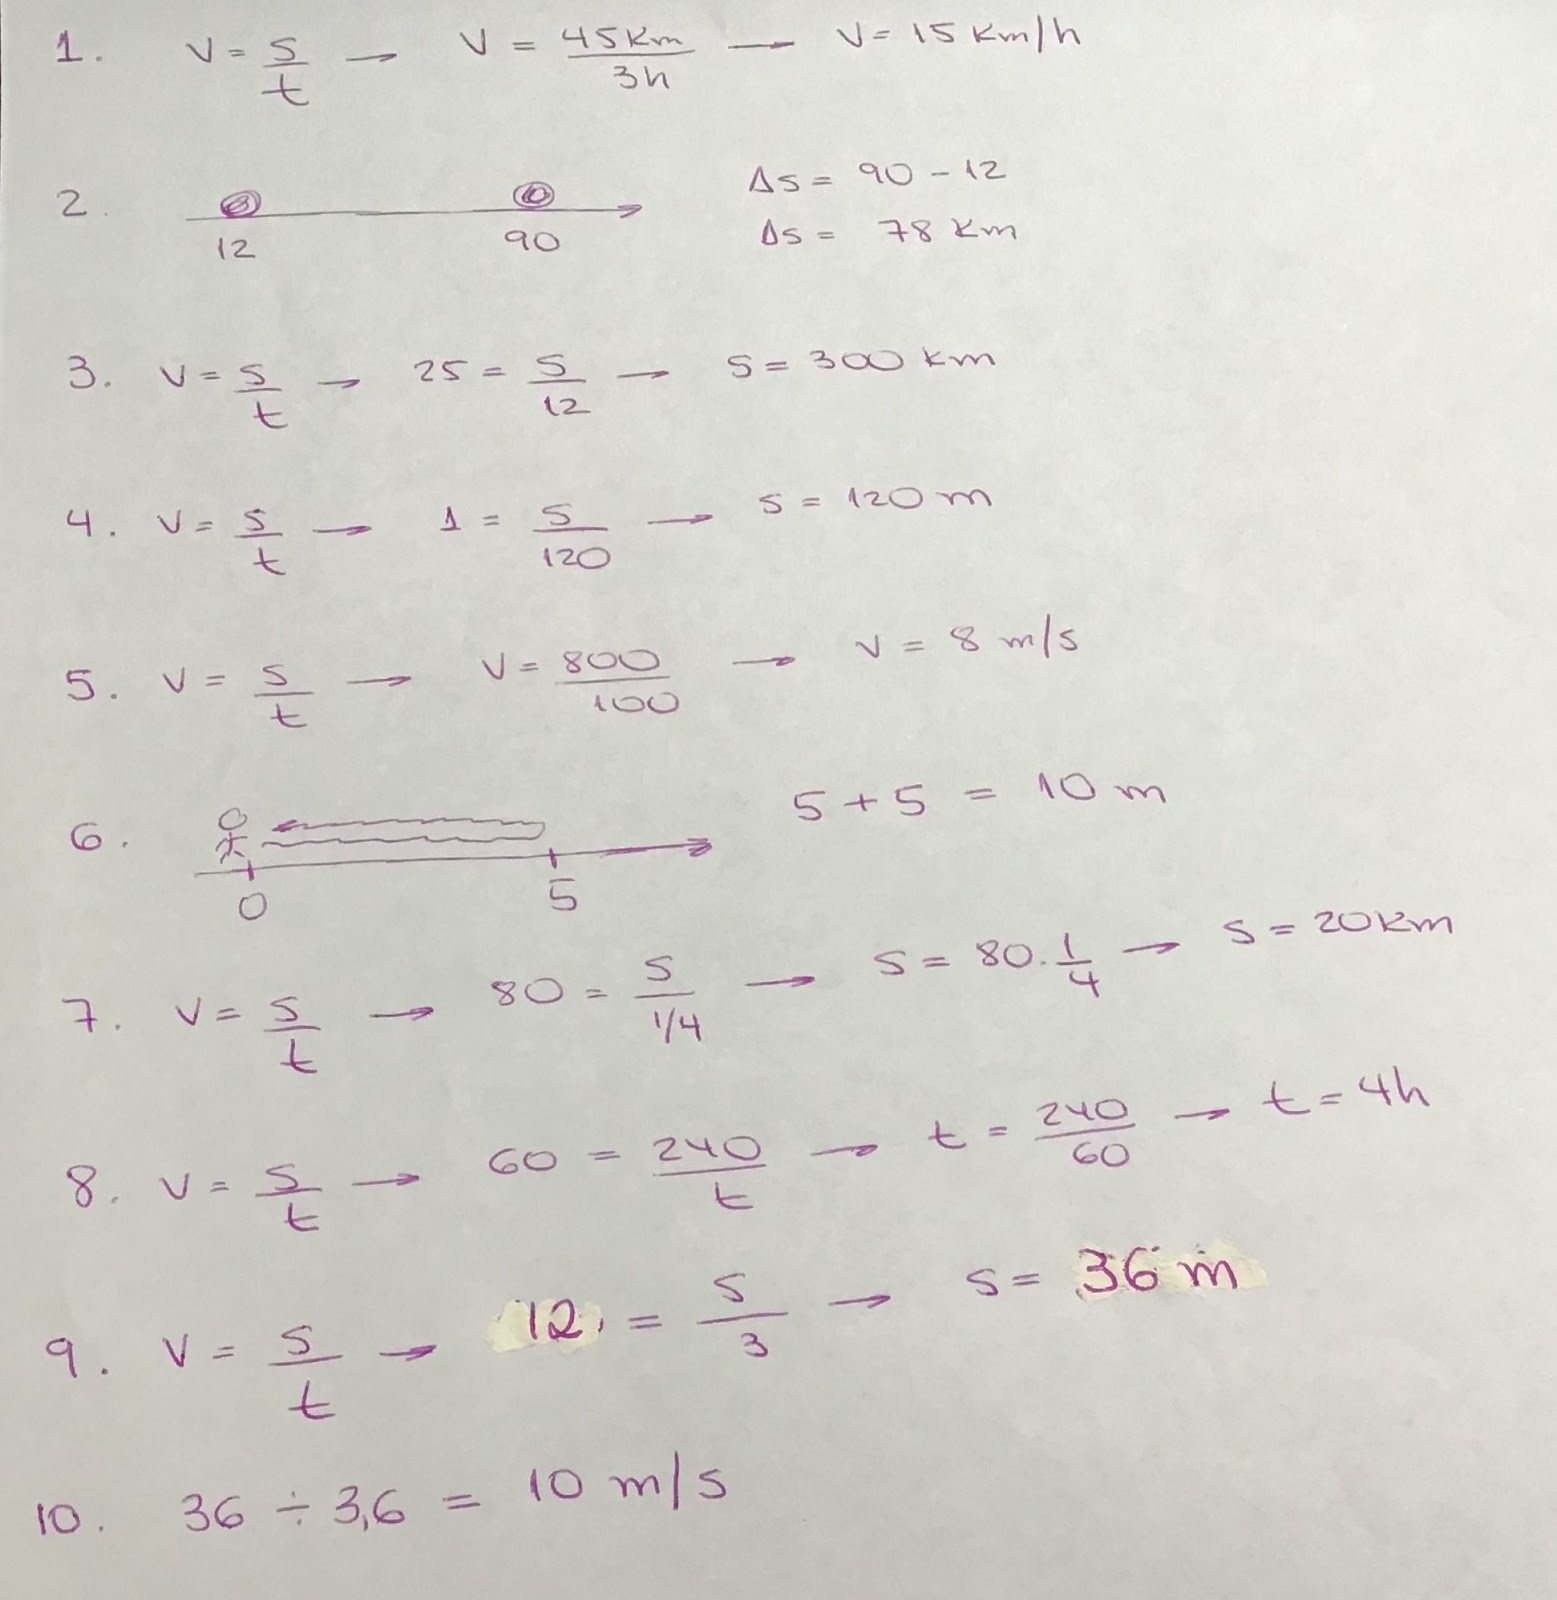 1. V = S/t → V = 45 Km/3h → V = 15 Km/h
2. 12 90 Δs = 90 - 12
Δs = 78 Km
3. V = S/t → 25 = S/12 → S = 300 Km
4. V = S/t → 1 = S/120 → S = 120 m
5. V = S/t → V = 800/100 → V = 8 m/s
6. 0 5 5 + 5 = 10 m
7. V = S/t → 80 = S/1/4 → S = 80 . 1/4 → S = 20 Km
8. V = S/t → 60 = 240/t → t = 240/60 → t = 4h
9. V = S/t → 12 = S/3 → S = 36 m
10. 36 ÷ 3,6 = 10 m/s